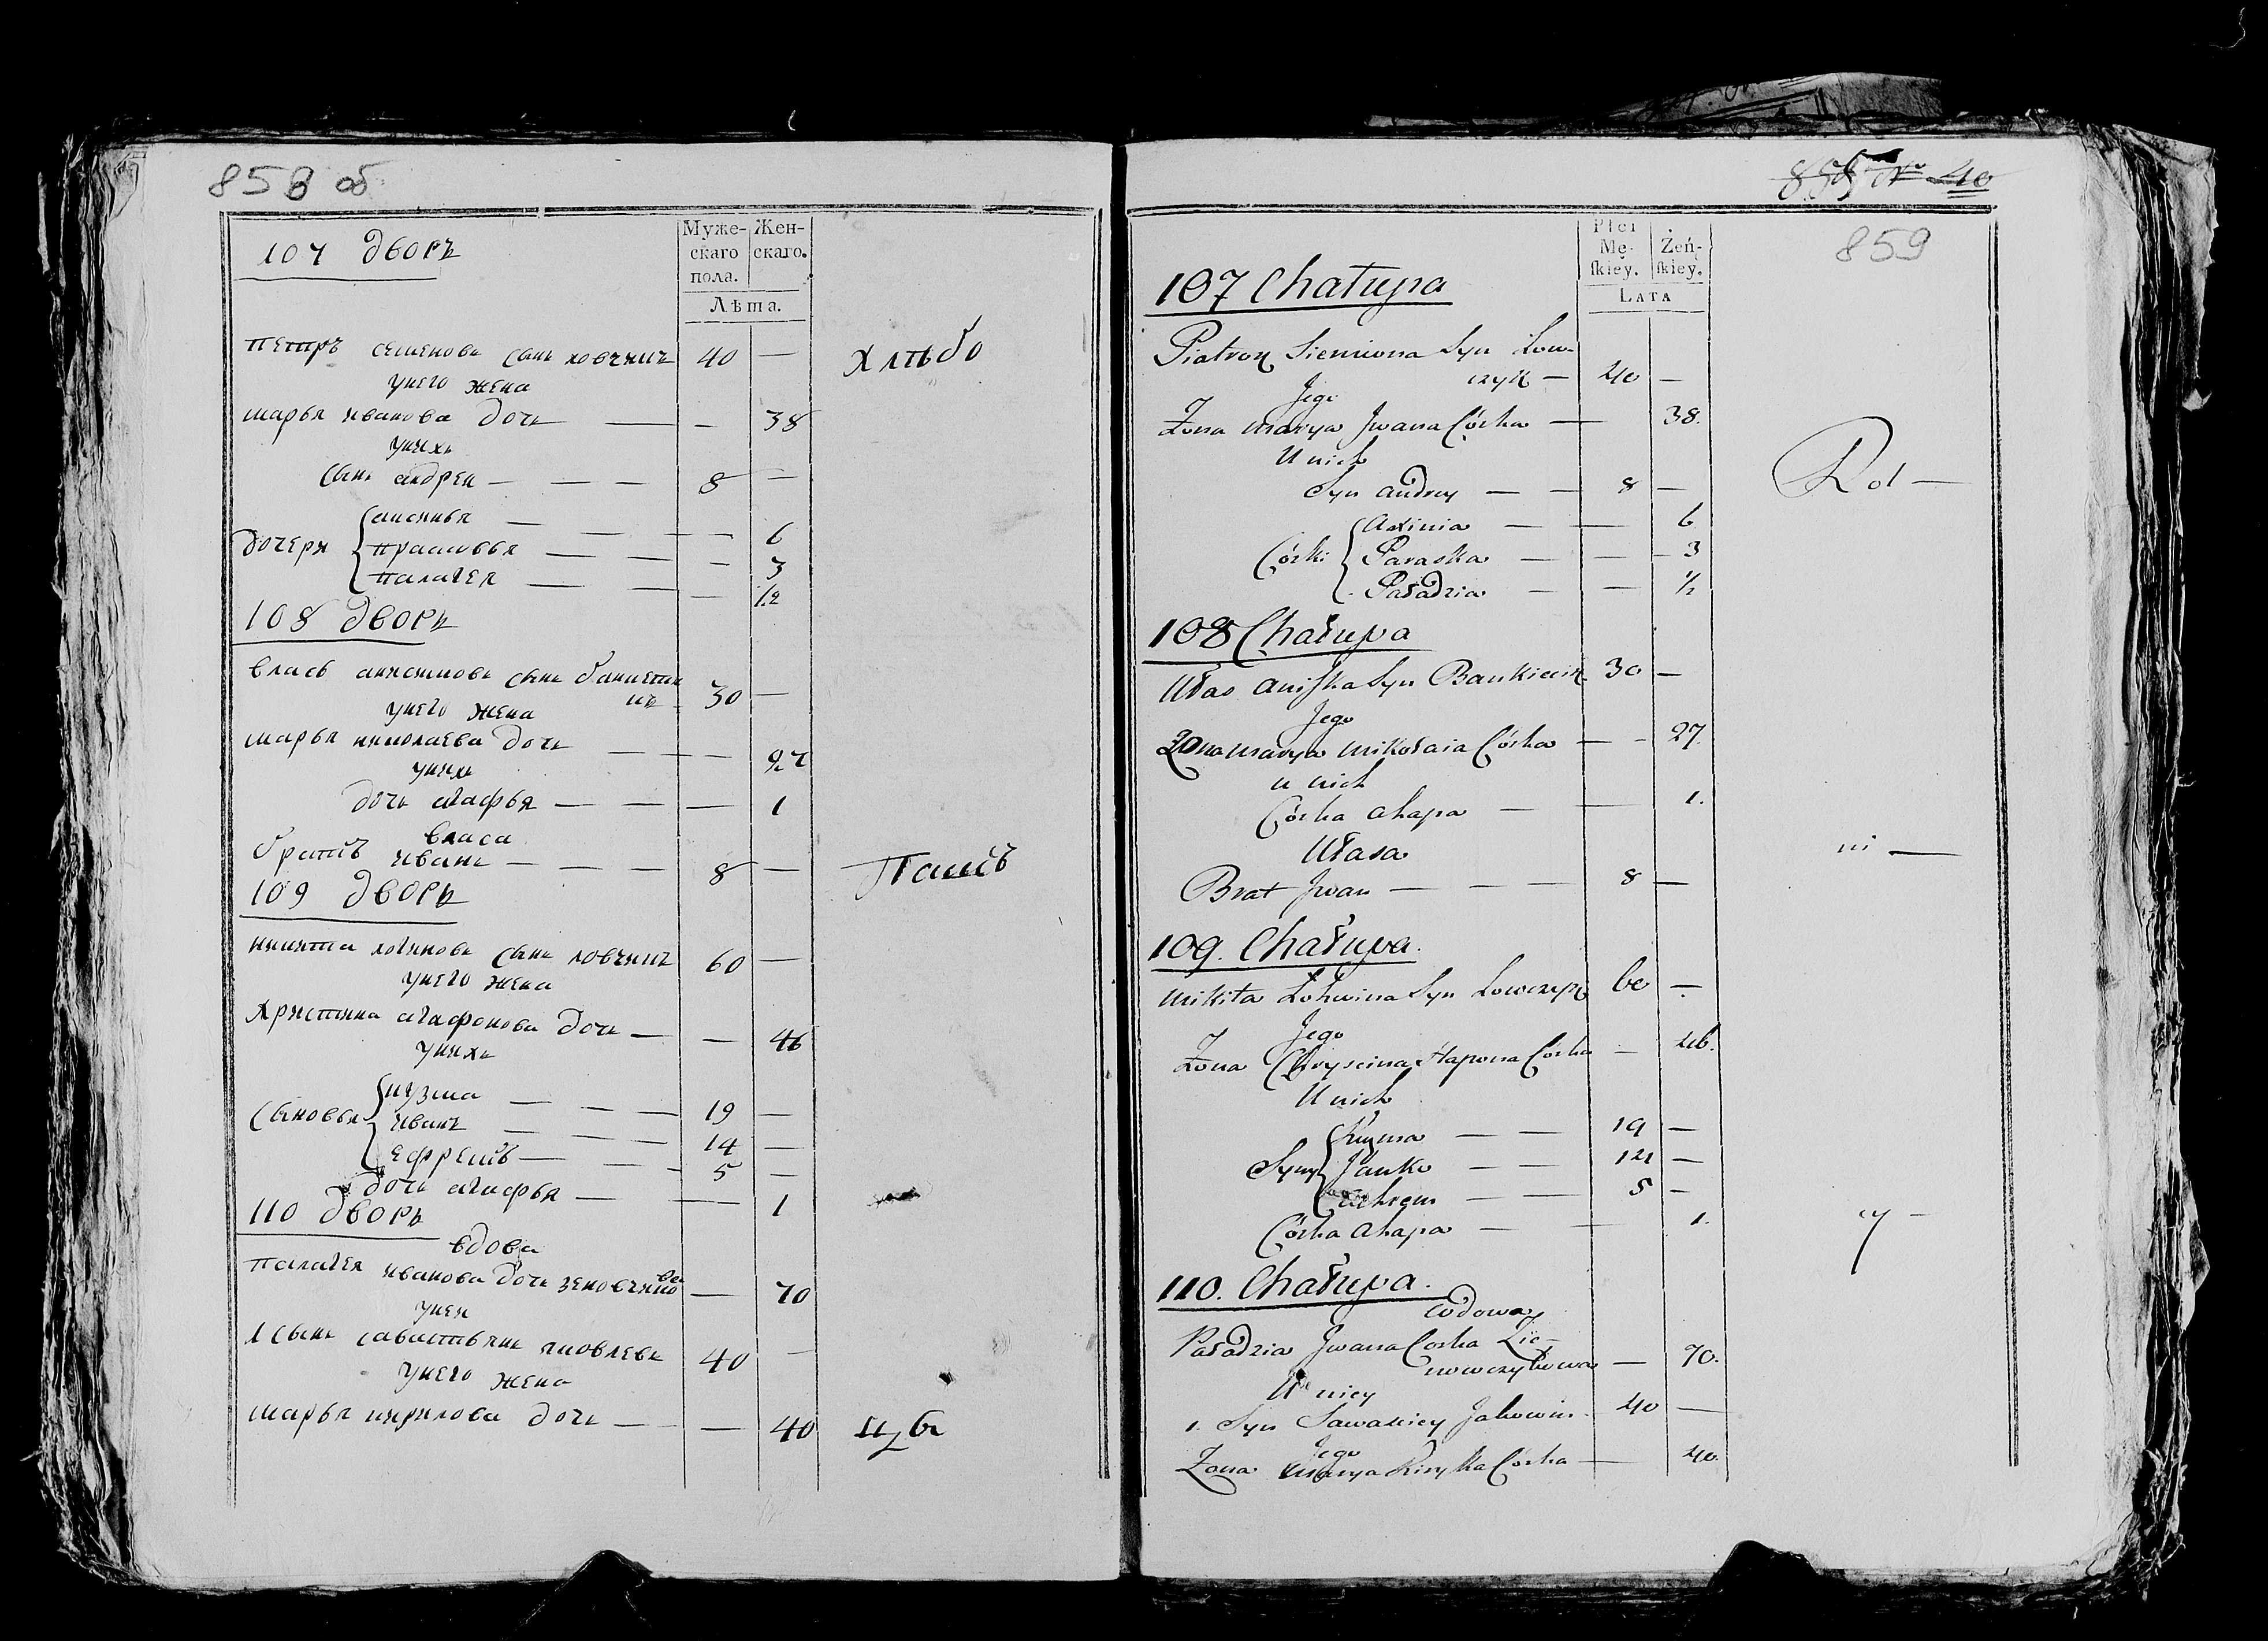 858 об
Муже-
скаго
пола.
Жен-
скаго.
Лѣта.
107 дворъ
петръ семеновъ сынъ ловчикъ 40 —
у него жена
марья иванова дочь — — 38
у нихъ
сынъ андреи — — — 8 —
дочери
аксинья — — — — 6
прасковья — — — 3
палагея — — — 1/2
хлѣбо
108 дворъ
власъ анисимовъ сынъ банкеви
чъ 30 —
у него жена
марья николаева дочь — — — 27
у нихъ
дочь агафья — — — 1
власа
братъ иванъ — — — 8 —
пашъ
109 дворъ
никита логиновъ сынъ ловчикъ 60 —
у него жена
христина агафонова дочь — — 46
у нихъ
сыновья
кузма — — — 19 —
иванъ — — — 14 —
ефремъ — — — 5 —
дочь агафья — — — 1
110 дворъ
вдова
палагея иванова дочь зеновчико
ва — 70
у неи
1 сынъ савастьянъ яковлевъ 40 —
у него жена
марья кирилова дочь — — 40
цы
859
Płci
Mę-
skiey.
Żeń-
skiey.
LATA
107 Chałupa
Piatroz Siemiona Syn Łow-
czyk — 40 —
Jego
Żona Marya Jwana Córka — 38.
U nich
Syn Andrey — — 8 —
Córki
Axinia — — 6
Paraska — — — 3
Paładzia — — 1/2
Rol —
108 Chałupa
Ułas Aniska Syn Bankiewicz 30 —
Jego
Żona Marya Mikołaia Córka — — 27.
u nich
Córka Ahapa — — 1.
Ułasa
Brat Jwan — — — 8 —
ni —
109. Chałupa.
Mikita Łohwina Syn Łowczyk 60 —
Jego
Żona Chryscina Hapona Córka — 46.
U nich
Syny
Kuzma — — 19 —
Janko — — 14 —
Achrem — — 5 —
Córka Ahapa — — 1.
cy —
110. Chałupa.
wdowa
Paładzia Jwana Corka Zie-
nowczykowa — 70.
U niey
1. Syn Sawasciey Jakowiw 40 —
Jego
Żona Marya Kiryłka Córka — 40.